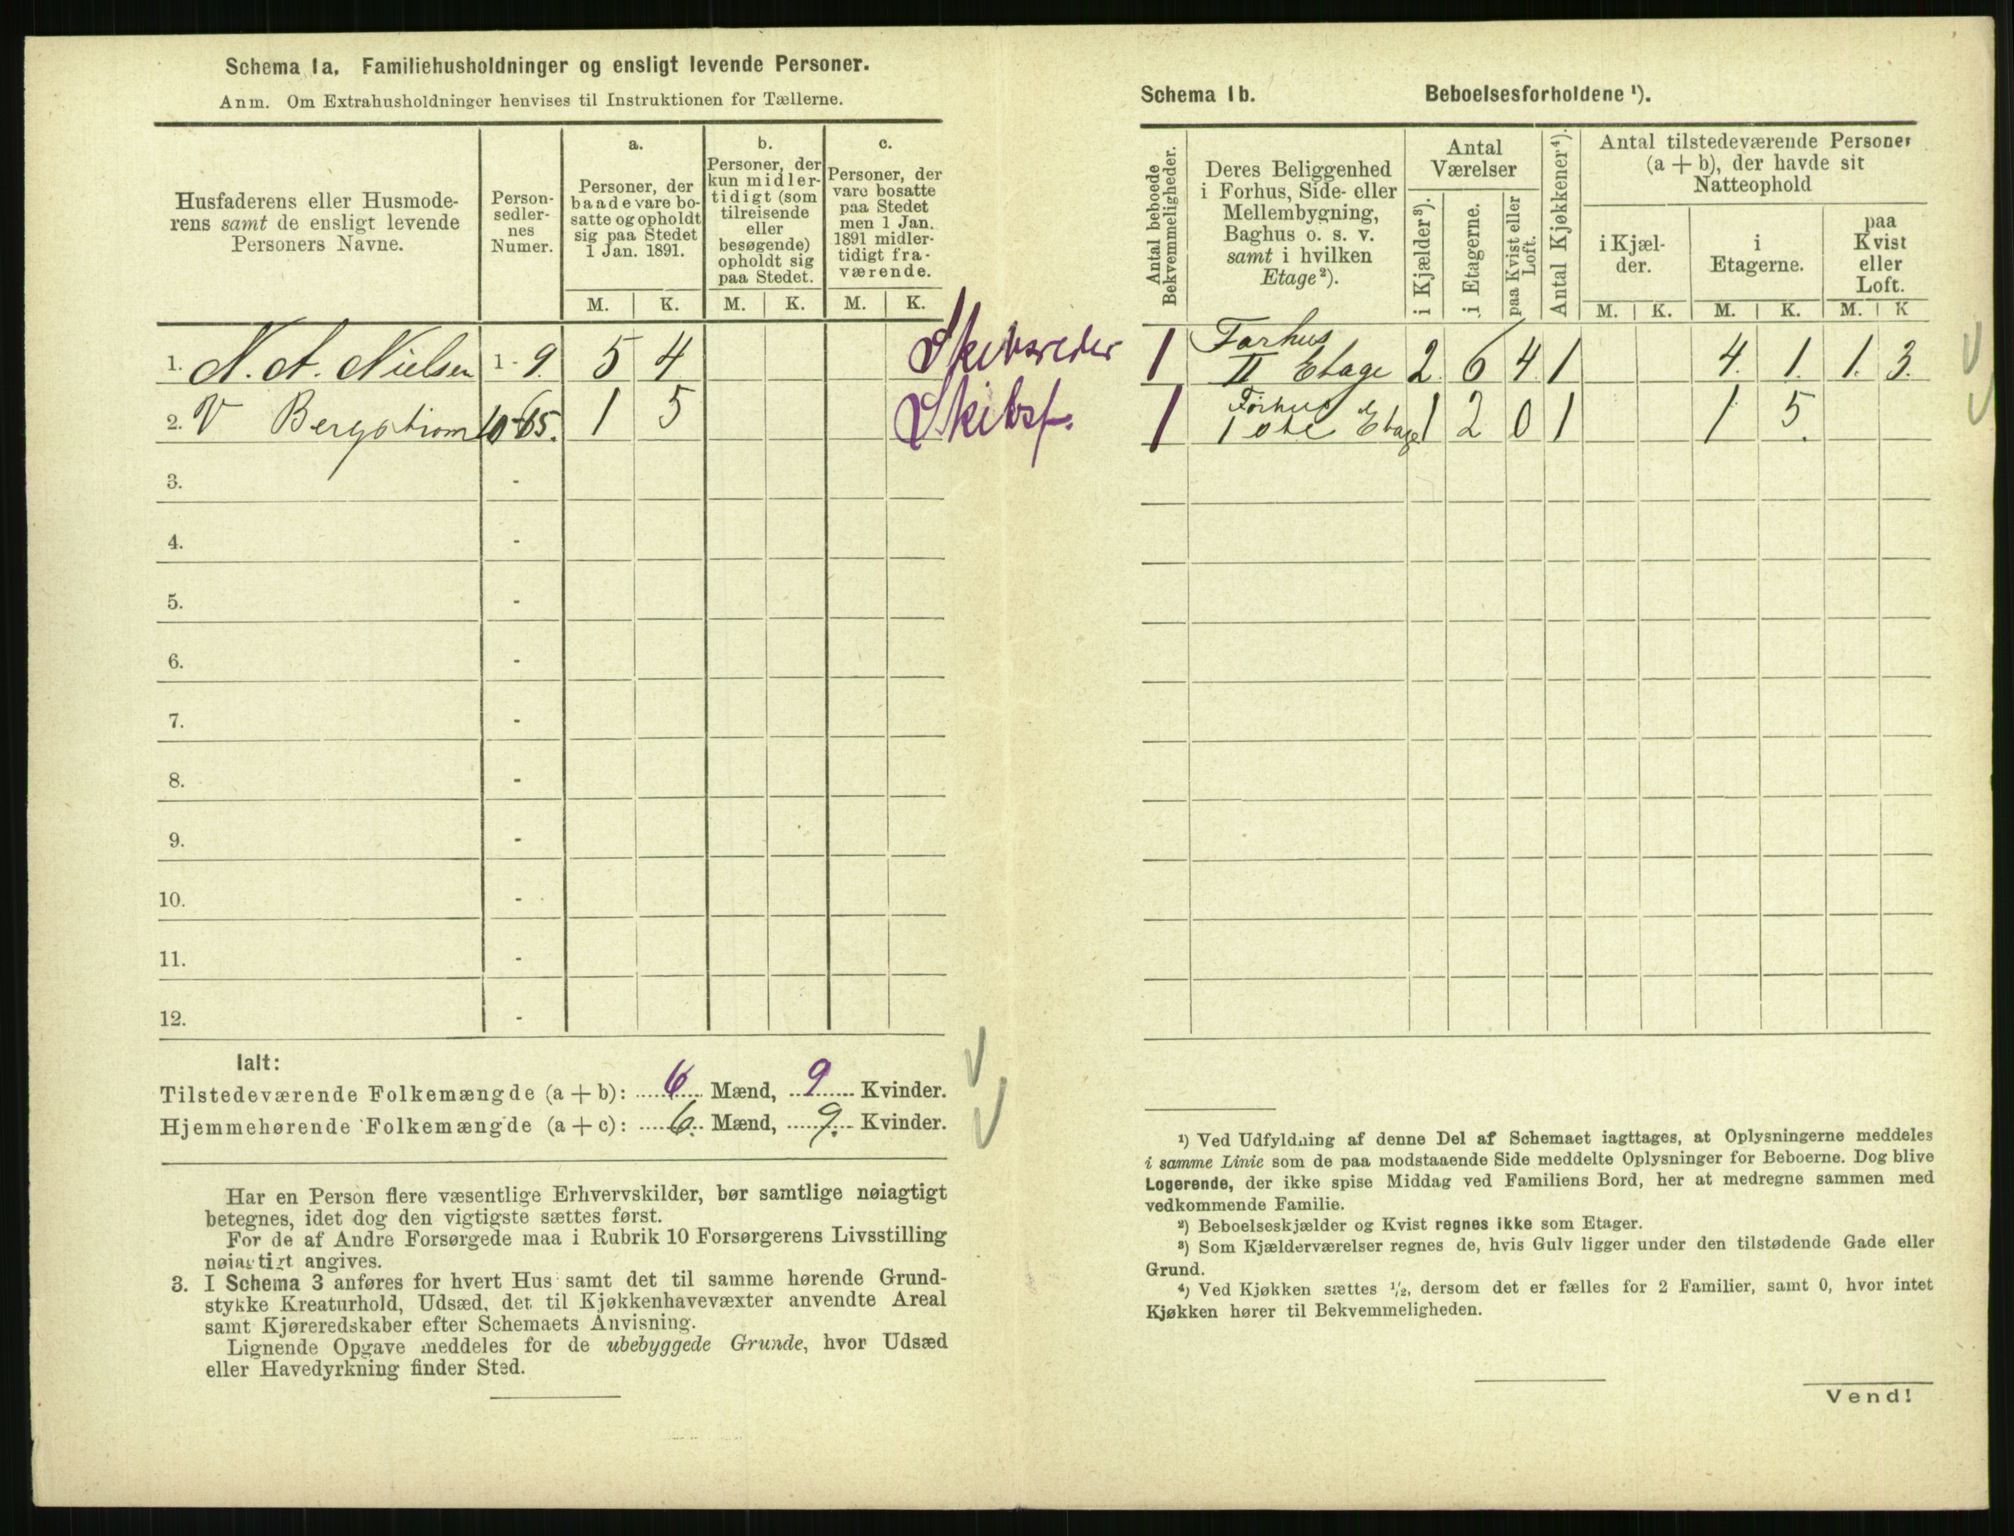 Schema 1a. Familiehusholdninger og ensligt levende Personer.
Anm. Om Extrahusholdninger henvises til Instruktionen for Tællerne.
Husfaderens eller Husmoderens samt de ensligt levende Personers Navne.
Personsedlernes Numer.
a.
Personer, der baade vare bosatte og opholdt sig paa Stedet 1 Jan. 1891.
b.
Personer, der kun midlertidigt (som tilreisende eller besøgende) opholdt sig paa Stedet.
c.
Personer, der vare bosatte paa Stedet men 1 Jan. 1891 midlertidigt fraværende.
M. K. M. K. M. K.
1. N. A. Nielsen 1 - 9. 5 4 Skibsreder
2. V Bergstrøm 10-15. 1 5 Skibsf.
3. -
4. -
5. -
6. -
7. -
8. -
9. -
10. -
11. -
12. -
Ialt:
Tilstedeværende Folkemængde (a + b): 6 Mænd, 9 Kvinder.
Hjemmehørende Folkemængde (a + c): 6. Mænd, 9. Kvinder.
Har en Person flere væsentlige Erhvervskilder, bør samtlige nøiagtigt
betegnes, idet dog den vigtigste sættes først.
For de af Andre Forsørgede maa i Rubrik 10 Forsørgerens Livsstilling
nøiagtigt angives.
3. I Schema 3 anføres for hvert Hus samt det til samme hørende Grund-
stykke Kreaturhold, Udsæd, det til Kjøkkenhavevæxter anvendte Areal
samt Kjøreredskaber efter Schemaets Anvisning.
Lignende Opgave meddeles for de ubebyggede Grunde, hvor Udsæd
eller Havedyrkning finder Sted.
Schema 1b. Beboelsesforholdene ¹).
Antal beboede Bekvemmeligheder.
Deres Beliggenhed i Forhus, Side- eller Mellembygning, Baghus o. s. v. samt i hvilken Etage²).
Antal Værelser
i Kjælder³).
i Etagerne.
paa Kvist eller Loft.
Antal Kjøkkener⁴).
Antal tilstedeværende Personer (a + b), der havde sit Natteophold
i Kjælder.
i Etagerne.
paa Kvist eller Loft.
M. K. M. K. M. K
1 Forhus II Etage 2 6 4 1 4. 1. 1. 3.
1 Forhus 1 ste Etage 1 2 0 1 1 5.
¹) Ved Udfyldning af denne Del af Schemaet iagttages, at Oplysningerne meddeles
i samme Linie som de paa modstaaende Side meddelte Oplysninger for Beboerne. Dog blive
Logerende, der ikke spise Middag ved Familiens Bord, her at medregne sammen med
vedkommende Familie.
²) Beboelseskjælder og Kvist regnes ikke som Etager.
³) Som Kjælderværelser regnes de, hvis Gulv ligger under den tilstødende Gade eller
Grund.
⁴) Ved Kjøkken sættes ½, dersom det er fælles for 2 Familier, samt 0, hvor intet
Kjøkken hører til Bekvemmeligheden.
Vend!